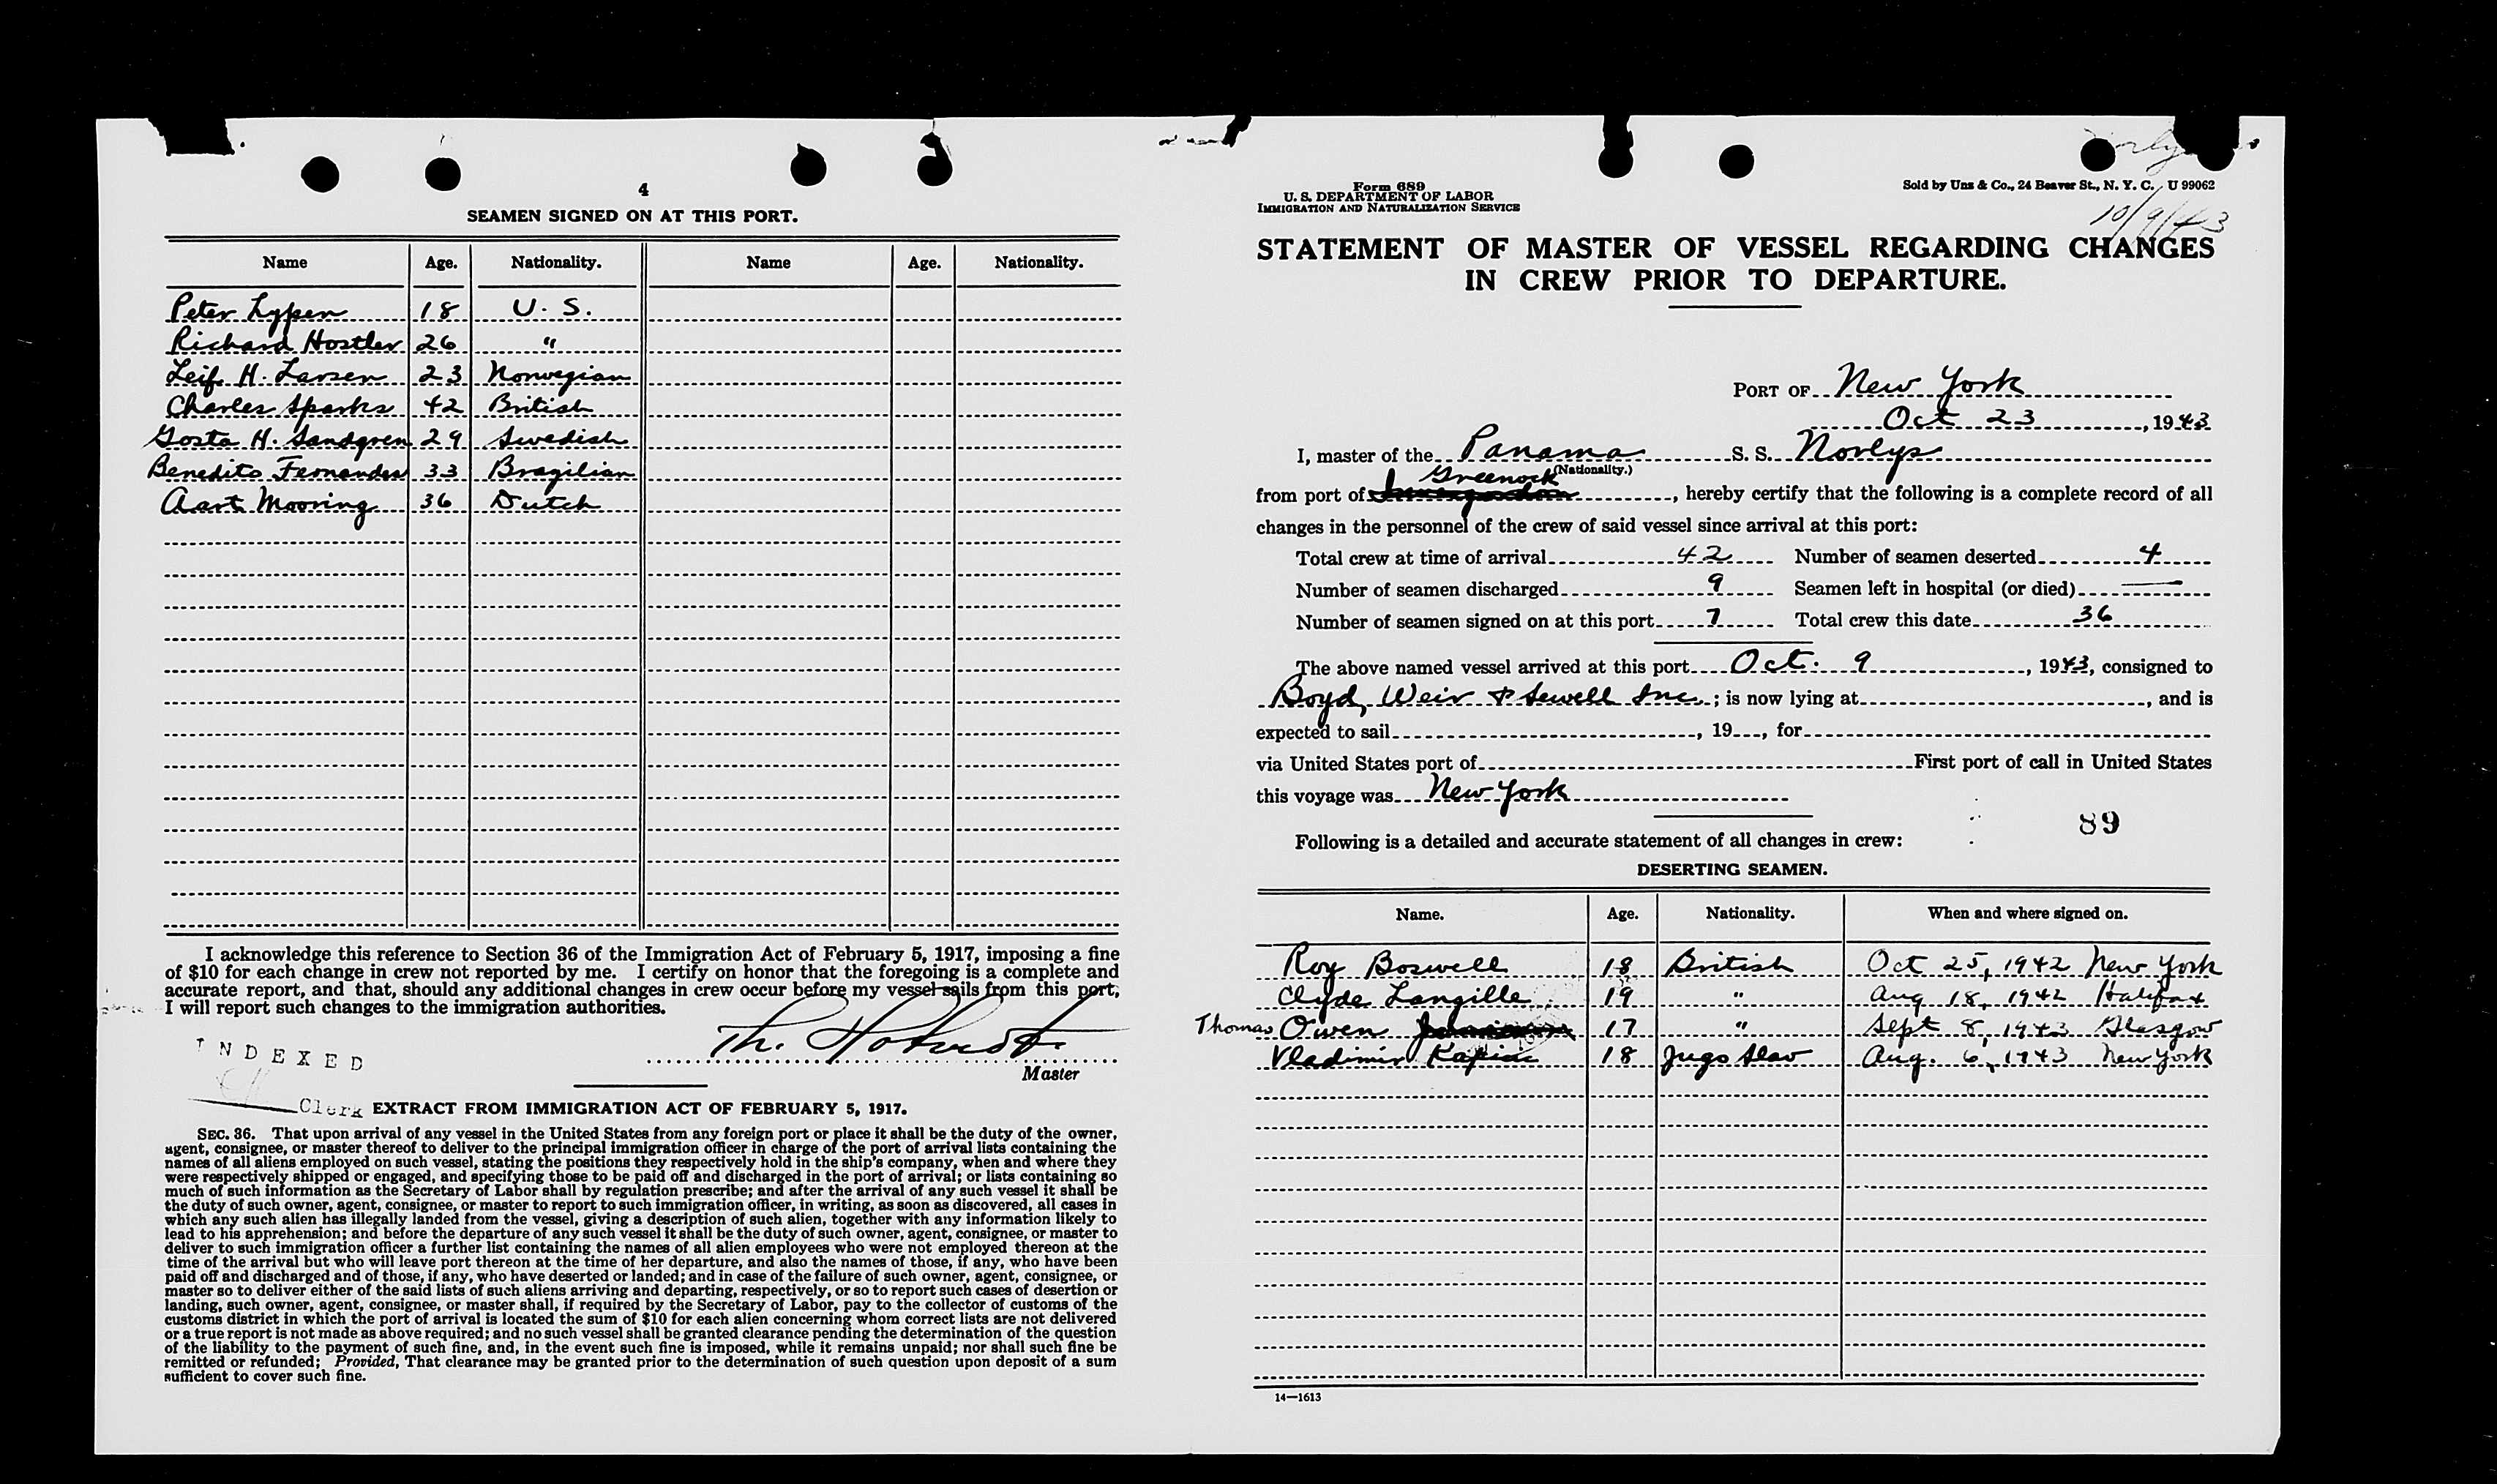 4
SEAMEN SIGNED ON AT THIS PORT.
Name Age. Nationality. Name Age. Nationality.
Peter Lypen 18 U. S.
Richard Hostler 26 "
Leif H. Larsen 23 Norwegian
Charles Sparks 42 British
Gosta H. Sandgren 29 Swedish
Benedito Fernandes 33 Brazilian
Aart Mooring 36 Dutch
I acknowledge this reference to Section 36 of the Immigration Act of February 5, 1917, imposing a fine
of $10 for each change in crew not reported by me. I certify on honor that the foregoing is a complete and
accurate report, and that, should any additional changes in crew occur before my vessel sails from this port,
I will report such changes to the immigration authorities.
Th.
Master
INDEXED
Clerk
EXTRACT FROM IMMIGRATION ACT OF FEBRUARY 5, 1917.
SEC. 36. That upon arrival of any vessel in the United States from any foreign port or place it shall be the duty of the owner,
agent, consignee, or master thereof to deliver to the principal immigration officer in charge of the port of arrival lists containing the
names of all aliens employed on such vessel, stating the positions they respectively hold in the ship's company, when and where they
were respectively shipped or engaged, and specifying those to be paid off and discharged in the port of arrival; or lists containing so
much of such information as the Secretary of Labor shall by regulation prescribe; and after the arrival of any such vessel it shall be
the duty of such owner, agent, consignee, or master to report to such immigration officer, in writing, as soon as discovered, all cases in
which any such alien has illegally landed from the vessel, giving a description of such alien, together with any information likely to
lead to his apprehension; and before the departure of any such vessel it shall be the duty of such owner, agent, consignee, or master to
deliver to such immigration officer a further list containing the names of all alien employees who were not employed thereon at the
time of the arrival but who will leave port thereon at the time of her departure, and also the names of those, if any, who have been
paid off and discharged and of those, if any, who have deserted or landed; and in case of the failure of such owner, agent, consignee, or
master so to deliver either of the said lists of such aliens arriving and departing, respectively, or so to report such cases of desertion or
landing, such owner, agent, consignee, or master shall, if required by the Secretary of Labor, pay to the collector of customs of the
customs district in which the port of arrival is located the sum of $10 for each alien concerning whom correct lists are not delivered
or a true report is not made as above required; and no such vessel shall be granted clearance pending the determination of the question
of the liability to the payment of such fine, and, in the event such fine is imposed, while it remains unpaid; nor shall such fine be
remitted or refunded; Provided, That clearance may be granted prior to the determination of such question upon deposit of a sum
sufficient to cover such fine.
Form 689
U. S. DEPARTMENT OF LABOR
IMMIGRATION AND NATURALIZATION SERVICE
Sold by Unz & Co., 24 Beaver St., N. Y. C. U 99062
10/9/43
STATEMENT OF MASTER OF VESSEL REGARDING CHANGES
IN CREW PRIOR TO DEPARTURE.
PORT OF New York
Oct 23, 1943
I, master of the Panama S. S. Norlys
(Nationality.)
from port of Greenock, hereby certify that the following is a complete record of all
changes in the personnel of the crew of said vessel since arrival at this port:
Total crew at time of arrival 42 Number of seamen deserted 4
Number of seamen discharged 9 Seamen left in hospital (or died) —
Number of seamen signed on at this port 7 Total crew this date 36
The above named vessel arrived at this port Oct. 9, 1943, consigned to
Boyd, Weir & Sewell Inc.; is now lying at , and is
expected to sail , 19 , for
via United States port of First port of call in United States
this voyage was New York
89
Following is a detailed and accurate statement of all changes in crew:
DESERTING SEAMEN.
Name. Age. Nationality. When and where signed on.
Roy Boswell 18 British Oct 25, 1942 New York
Clyde Langille 19 " Aug 18, 1942 Halifax
Thomas Owen 17 " Sept 8, 1943 Glasgow
Vladimir 18 Jugo Slav Aug. 6, 1943 New York
14—1613